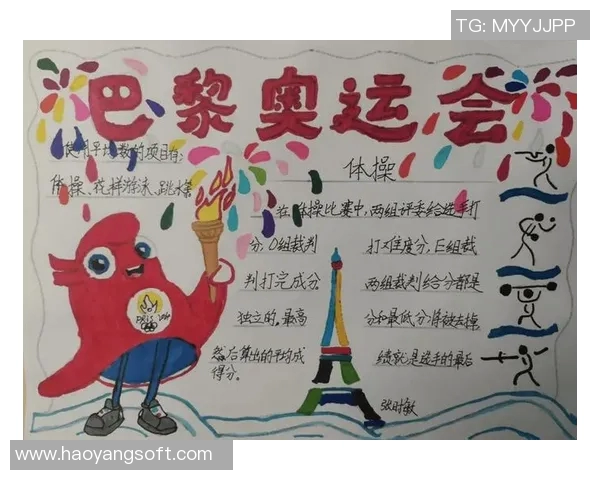 TG: MYYJJPP
巴黎奥运会
使用平均数的项目有:
体操、花样游泳、跳水等
体操
在体操比赛中,两组评委给选手打
分,D组裁判 打难度分,E组裁
判打完成分 两组裁判给分都是
独立的,最高 分和最低分将被去掉
然后算出的平均成 绩就是选手的最后
得分。
PARIS 2024
www.haoyangsoft.com